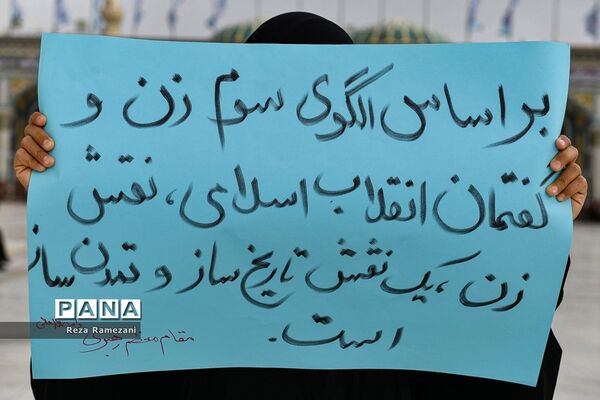 بر اساس الگوی سوم زن و
گفتمان انقلاب اسلامی، نقش
زن، یک نقش تاریخ ساز و تمدن ساز
است.
مقام معظم رهبری
PANA
Reza Ramezani